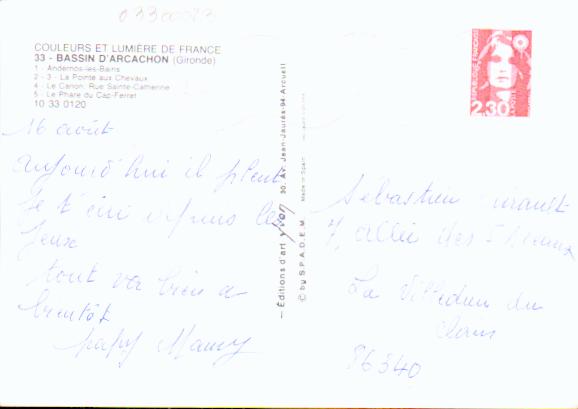 03300023
COULEURS ET LUMIÈRE DE FRANCE
33 - BASSIN D'ARCACHON (Gironde)
1 - Andernos-les-Bains
2 - 3 - La Pointe aux Chevaux
4 - Le Canon: Rue Sainte-Catherine
5 - Le Phare du Cap-Ferret
10 33 0120
16 août
aujourd'hui il pleut
je t'écris depuis les
jeux
tout va bien a
bientôt
papy Mamy
— Éditions d'art yvon 30, Av. Jean-Jaurès-94 Arcueil
© by S.P.A.D.E.M. Made in Spain
RÉPUBLIQUE FRANÇAISE
2,30
Sébastien
7, allée des
La Villedieu du
Clain
86340